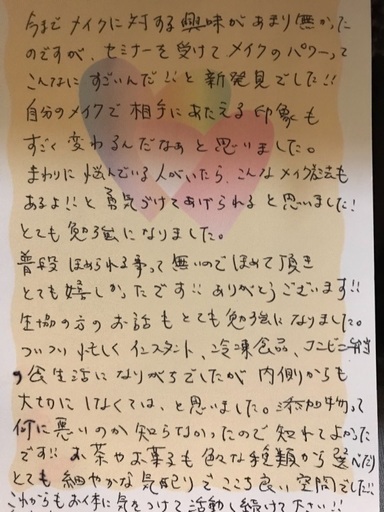 今までメイクに対する興味があまり無かった
のですが、セミナーを受けてメイクのパワーって
こんなにすごいんだ!!と新発見でした!!
自分のメイクで相手にあたえる印象も
すごく変わるんだなぁと思いました。
まわりに悩んでいる人がいたら、こんなメイク方法も
あるよ!!と勇気づけてあげられると思いました!
とても勉強になりました。
普段ほめられる事って無いのでほめて頂き
とても嬉しかったです!! ありがとうございます!!
生協の方のお話もとても勉強になりました。
ついつい忙しくインスタント、冷凍食品、コンビニ弁当
の食生活になりがちでしたが内側からも
大切にしなくては、と思いました。添加物って
何に悪いのか知らなかったので知れてよかった
です!! お茶やお菓子も色々な種類から選べたり
とても細やかな気配りでここち良い空間でした!!
これからもお体に気をつけて活動し続けて下さい!!